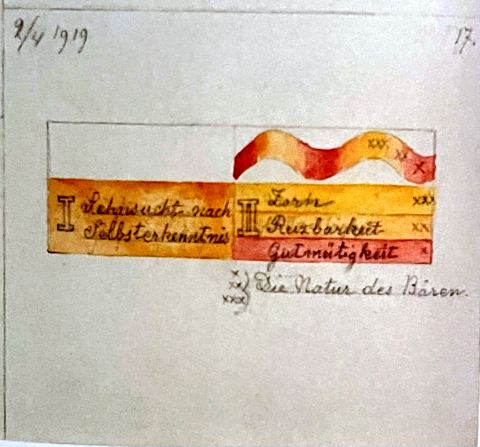 9/4 1919
17.
xxx
xx
x
I Sehnsucht nach
Selbsterkenntnis
II Zorn xxx
Reizbarkeit xx
Gutmütigkeit x
x
xx
xxx } Die Natur des Bären.